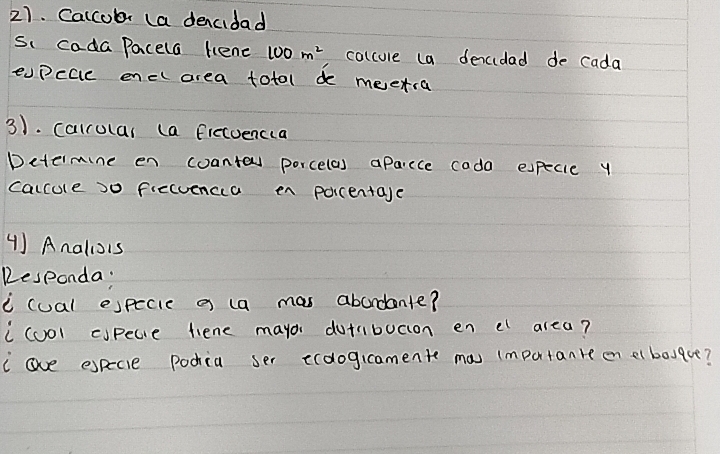 2). Calcular la dencidad
Si cada Parcela tiene 100 m², calcule la dencidad de cada
especie en el area total de mestra
3). calcular la frecuencia
Determine en cuantas parcelas aparece cada especie y
calcule su frecuencia en porcentaje
4) Analisis
Responda:
¿ cual especie es la mas abundante?
¿ cual especie tiene mayor dutribucion en el area?
¿ Que especie podria ser ecologicamente mas importante en el bosque?